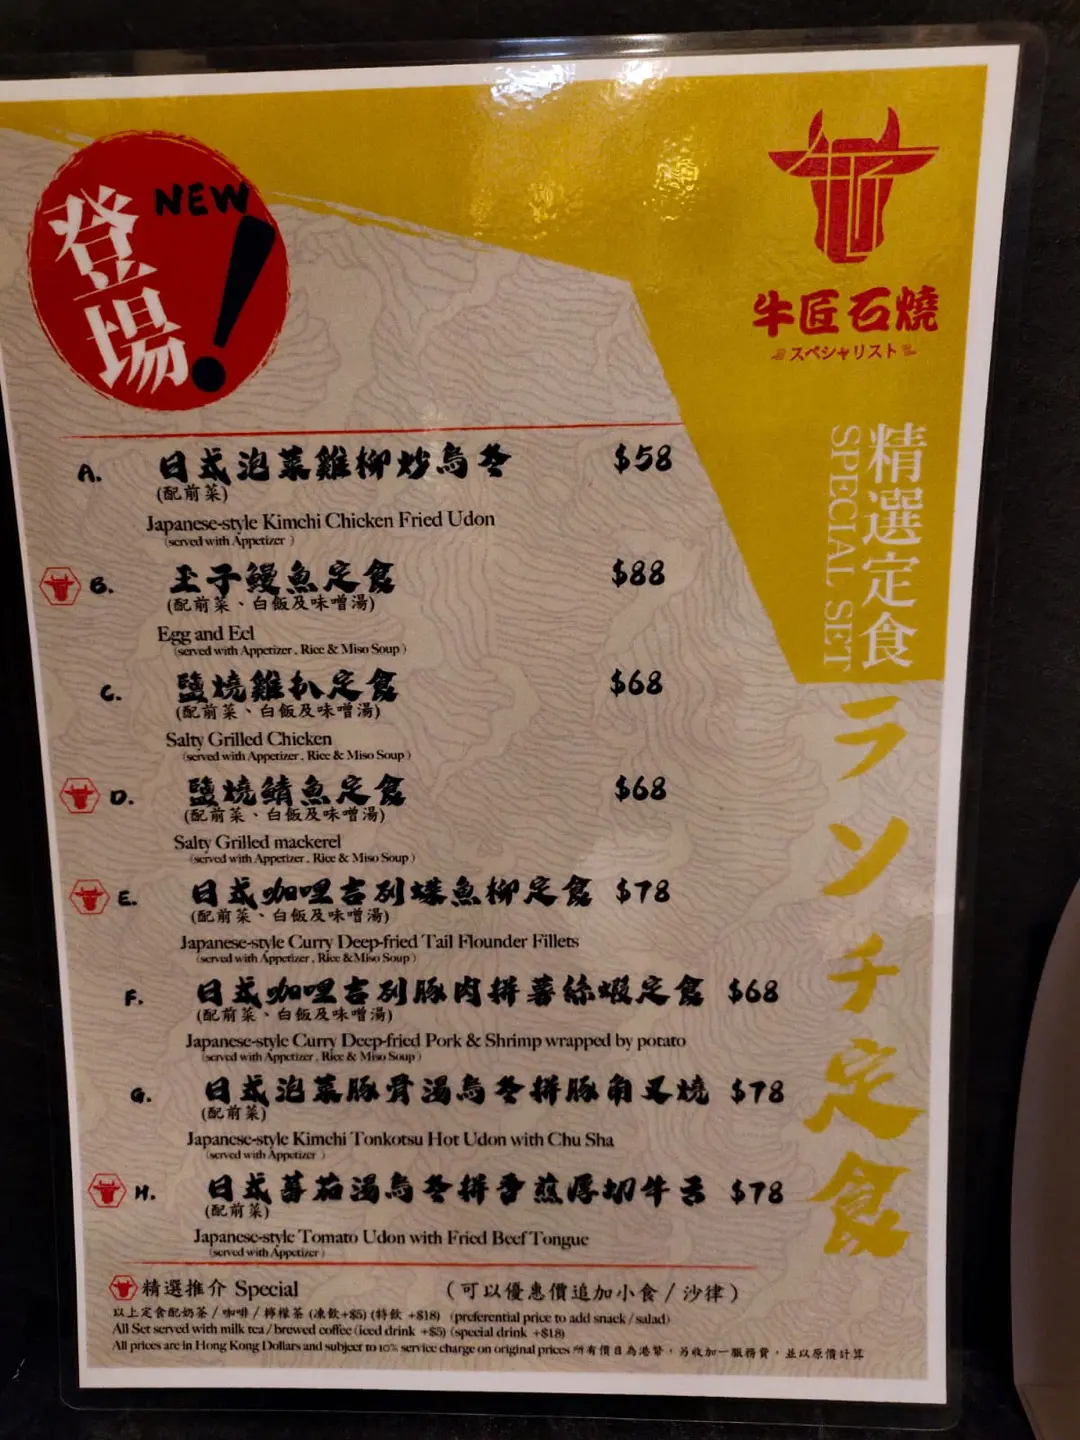 NEW
登場!
牛匠石燒
スペシャリスト
精選定食
SPECIAL SET
ランチ定食
A. 日式泡菜雞柳炒烏冬 $58
(配前菜)
Japanese-style Kimchi Chicken Fried Udon
(served with Appetizer )
B. 玉子鰻魚定食 $88
(配前菜、白飯及味噌湯)
Egg and Eel
(served with Appetizer , Rice & Miso Soup )
C. 鹽燒雞扒定食 $68
(配前菜、白飯及味噌湯)
Salty Grilled Chicken
(served with Appetizer , Rice & Miso Soup )
D. 鹽燒鯖魚定食 $68
(配前菜、白飯及味噌湯)
Salty Grilled mackerel
(served with Appetizer , Rice & Miso Soup )
E. 日式咖哩吉列鰈魚柳定食 $78
(配前菜、白飯及味噌湯)
Japanese-style Curry Deep-fried Tail Flounder Fillets
(served with Appetizer , Rice &Miso Soup )
F. 日式咖哩吉列豚肉拼薯絲蝦定食 $68
(配前菜、白飯及味噌湯)
Japanese-style Curry Deep-fried Pork & Shrimp wrapped by potato
(served with Appetizer , Rice & Miso Soup )
G. 日式泡菜豚骨湯烏冬拼豚角叉燒 $78
(配前菜)
Japanese-style Kimchi Tonkotsu Hot Udon with Chu Sha
(served with Appetizer )
H. 日式蕃茄湯烏冬拼香煎厚切牛舌 $78
(配前菜)
Japanese-style Tomato Udon with Fried Beef Tongue
(served with Appetizer )
精選推介 Special (可以優惠價追加小食/沙律)
以上定食配奶茶/咖啡/檸檬茶 (凍飲+$5) (特飲 +$18) (preferential price to add snack / salad)
All Set served with milk tea / brewed coffee (iced drink +$5) (special drink +$18)
All prices are in Hong Kong Dollars and subject to 10% service charge on original prices 所有價目為港幣，另收加一服務費，並以原價計算